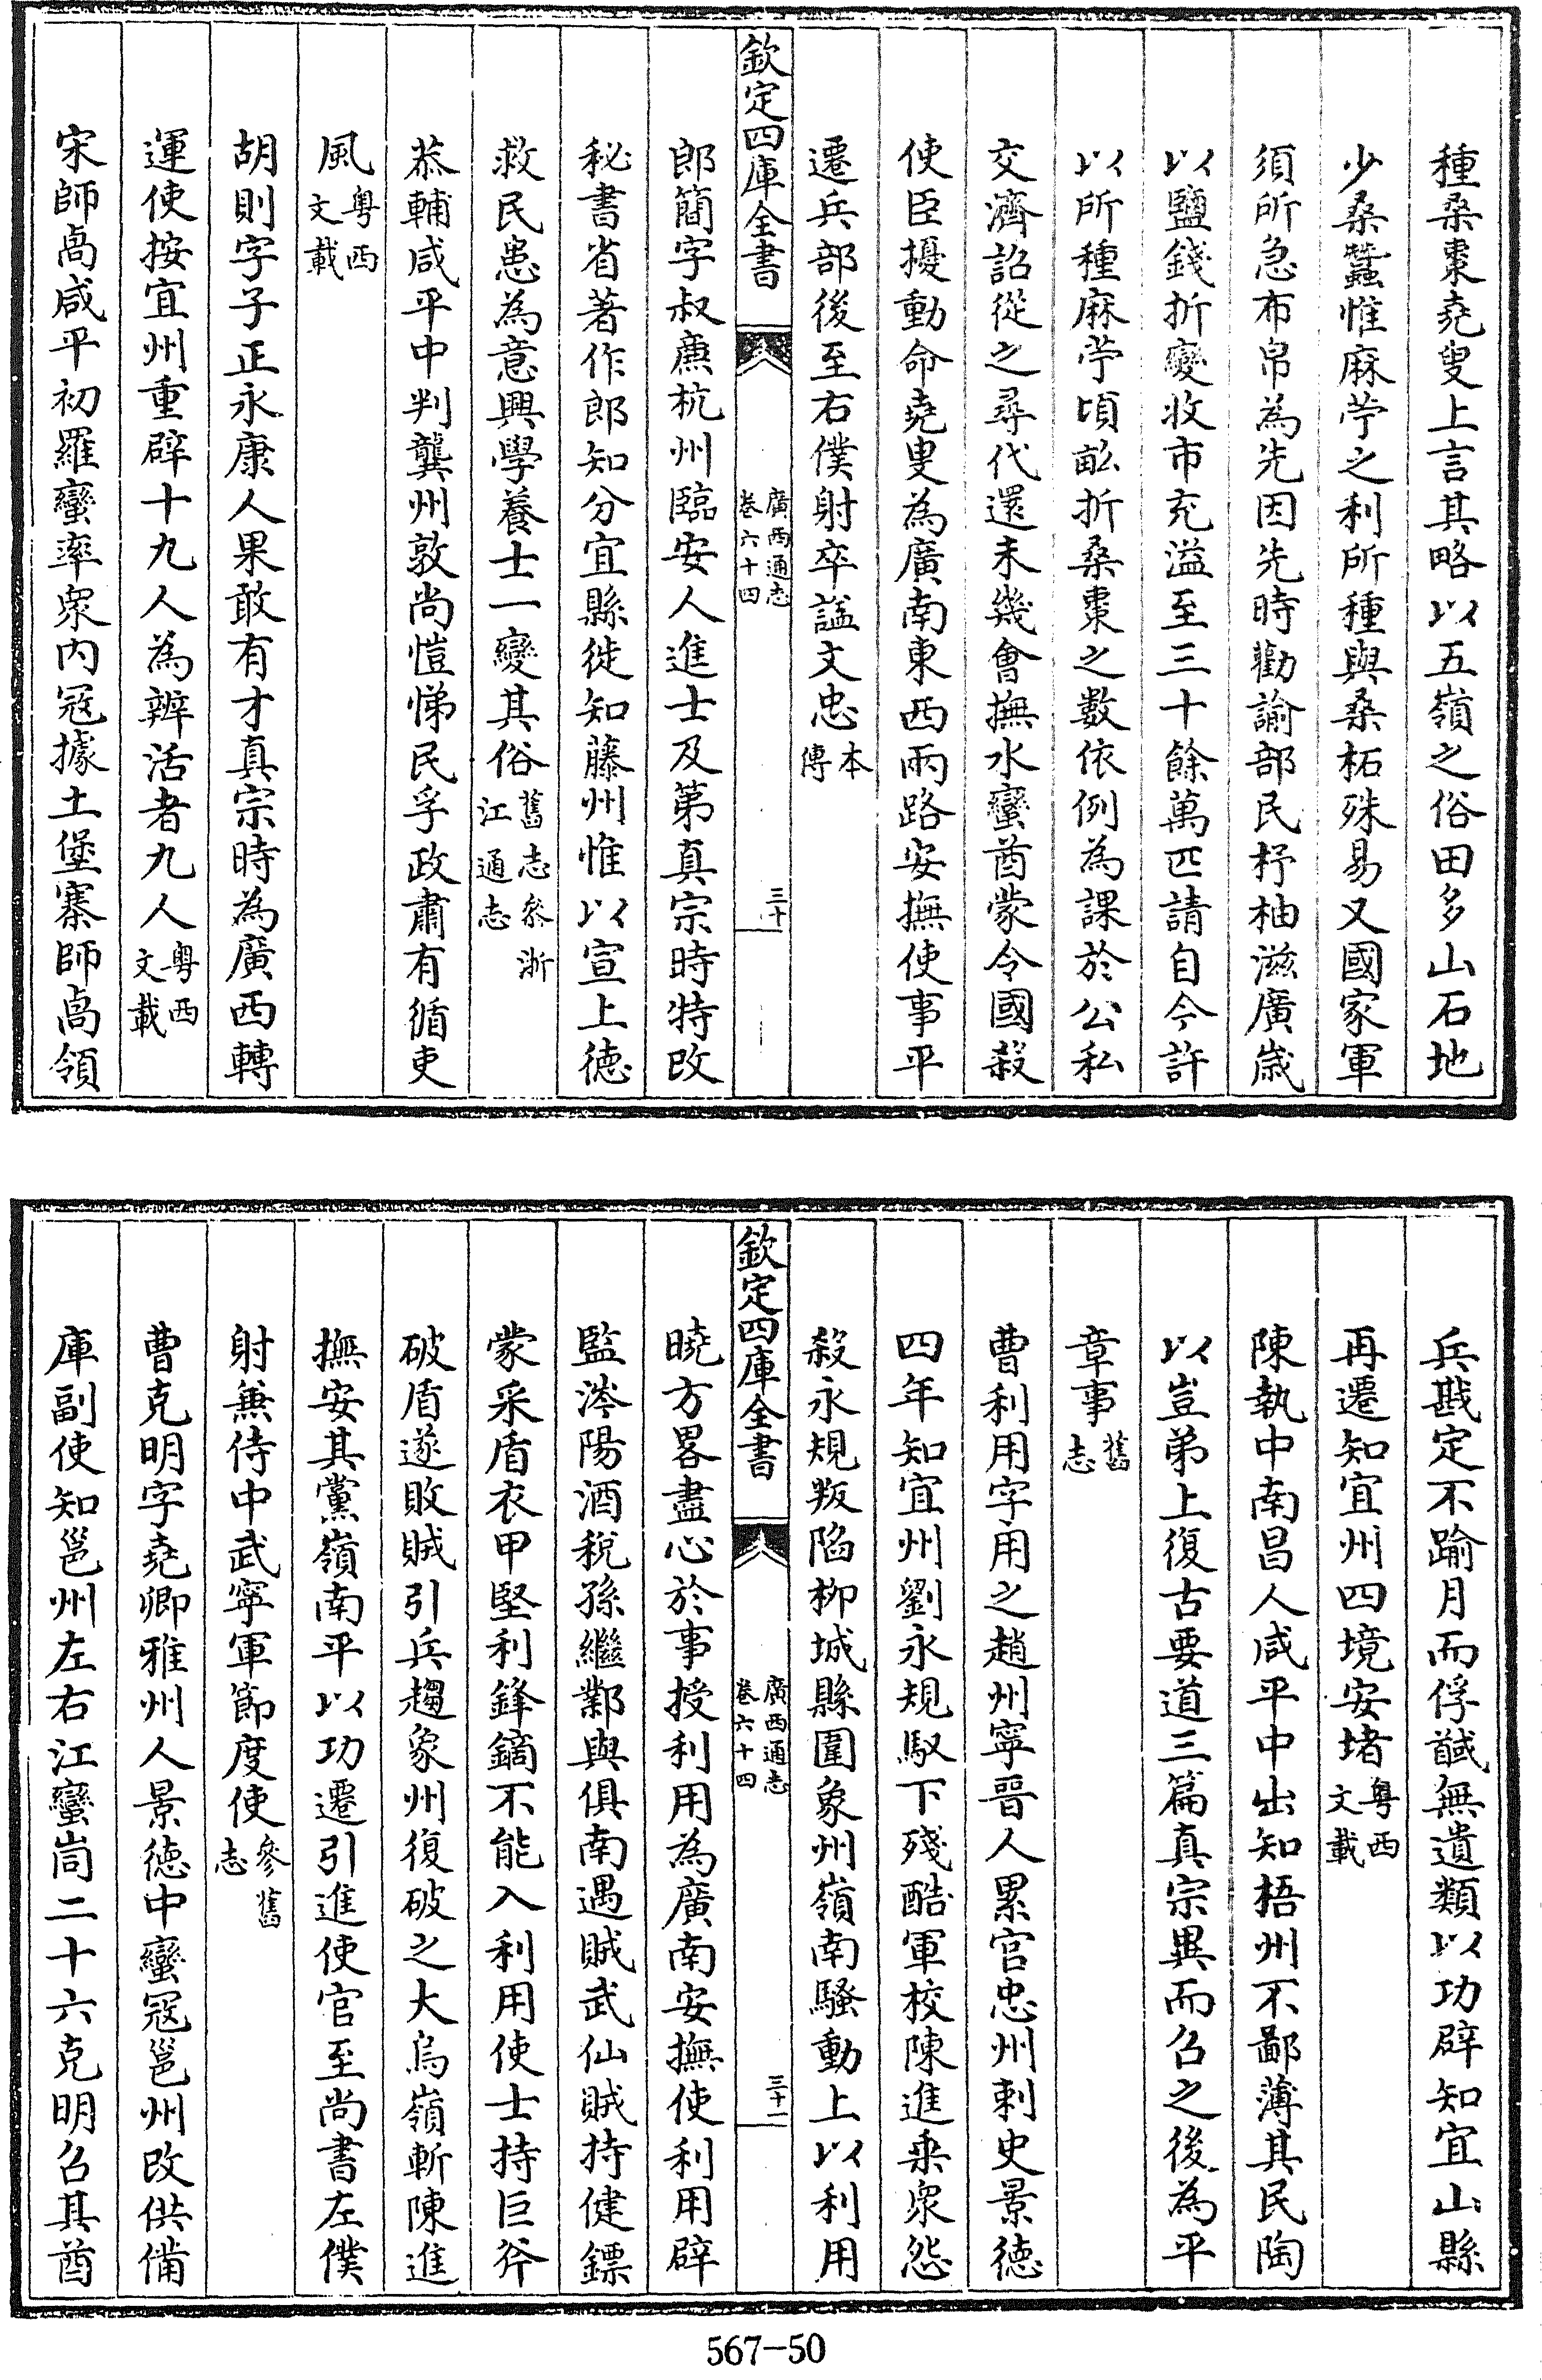 種桑棗堯叟上言其略以五嶺之俗田多山石地
少桑蠶惟麻苧之利所種與桑柘殊易又國家軍
須所急布帛為先因先時勸諭部民杼柚滋廣歳
以鹽錢折變收市充溢至三十餘萬匹請自今許
以所種麻苧頃畝折桑棗之數依例為課於公私
交濟詔從之尋代還未幾會撫水蠻酋蒙令國殺
使臣擾動命堯叟為廣南東西兩路安撫使事平
遷兵部後至右僕射卒諡文忠本傳
欽定四庫全書
廣西通志
卷六十四
三十
郎簡字叔廉杭州臨安人進士及第真宗時特改
秘書省著作郎知分宜縣徙知藤州惟以宣上徳
救民患為意興學養士一變其俗舊志參浙江通志
恭輔咸平中判龔州敦尚愷悌民孚政肅有循吏
風粵西文載
胡則字子正永康人果敢有才真宗時為廣西轉
運使按宜州重辟十九人為辨活者九人粵西文載
宋師卨咸平初羅蠻率衆内冦據土堡寨師卨領
兵戡定不踰月而俘馘無遺類以功辟知宜山縣
再遷知宜州四境安堵粵西文載
陳執中南昌人咸平中出知梧州不鄙薄其民陶
以豈弟上復古要道三篇真宗異而召之後為平
章事舊志
曹利用字用之趙州寧晉人累官忠州刺史景徳
四年知宜州劉永規馭下殘酷軍校陳進乗衆怨
殺永規叛陷柳城縣圍象州嶺南騷動上以利用
欽定四庫全書
廣西通志
卷六十四
三十一
曉方畧盡心於事授利用為廣南安撫使利用辟
監涔陽酒税孫繼鄴與俱南遇賊武仙賊持健鏢
蒙采盾衣甲堅利鋒鏑不能入利用使士持巨斧
破盾遂敗賊引兵趨象州復破之大烏嶺斬陳進
撫安其黨嶺南平以功遷引進使官至尚書左僕
射兼侍中武寧軍節度使參舊志
曹克明字堯卿雅州人景徳中蠻冦邕州改供備
庫副使知邕州左右江蠻峝二十六克明召其酋
567-50